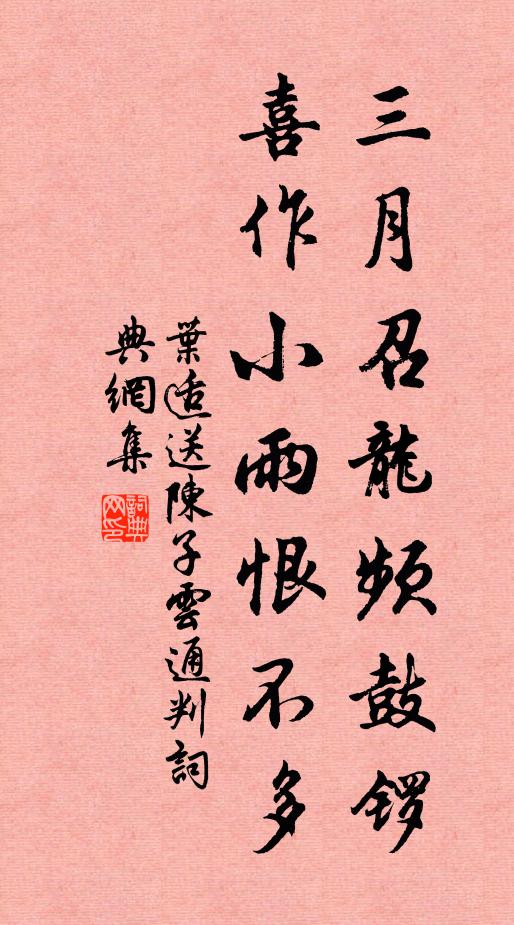 三月召龍頻鼓锣
喜作小雨恨不多
葉适送陳子雲通判詞
典網集
詞典網印